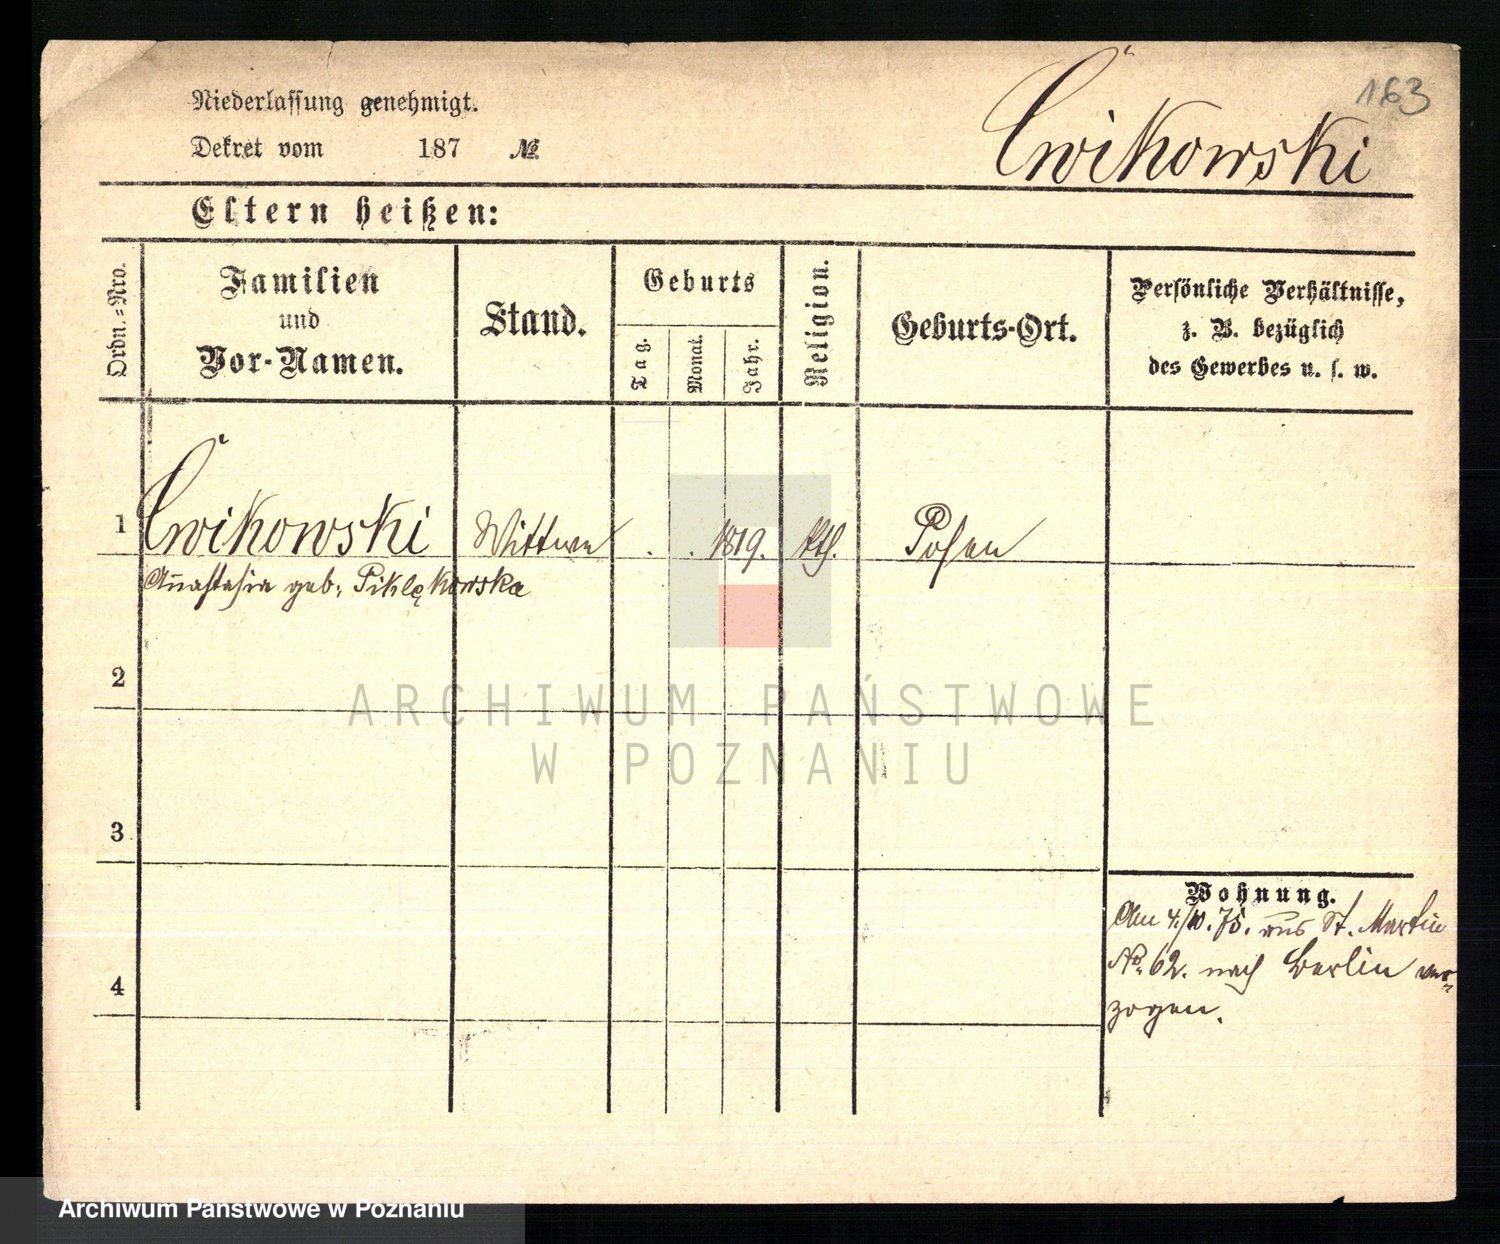 163
Niederlassung genehmigt.
Dekret vom 187 №
Cwikowski
Eltern heißen:
Ordn.=Nro.
Familien
und
Vor-Namen.
Stand.
Geburts
Tag.
Monat.
Jahr.
Religion.
Geburts-Ort.
Persönliche Verhältnisse,
z. B. bezüglich
des Gewerbes u. s. w.
1 Cwikowski Wittwe . . 1819. kth. Posen
Anastasia geb. Piklękowska
2
ARCHIWUM PAŃSTWOWE
W POZNANIU
3
Wohnung.
Am 4./10. 75. aus St. Martin
No. 62. nach Berlin ver-
zogen.
4
Archiwum Państwowe w Poznaniu